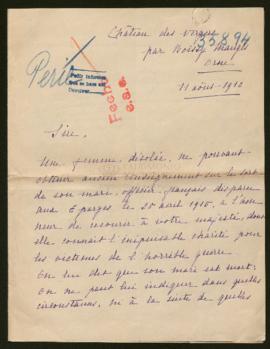 Château des
par Boissy Maugis
Orne
33894
11 août 1910
Petit
Fecho
Sire,
Une femme désolée, ne pouvant
obtenir aucun renseignement sur le sort
de son mari, officier français disparu
aux Eparges le 20 avril 1915, a l'hon
neur de recourir à votre majesté, dont
elle connait l'inépuisable charité pour
les victimes de l'horrible guerre.
On lui dit que son mari est mort;
On ne peut lui indiquer dans quelles
circonstances, ni à la suite de quelles